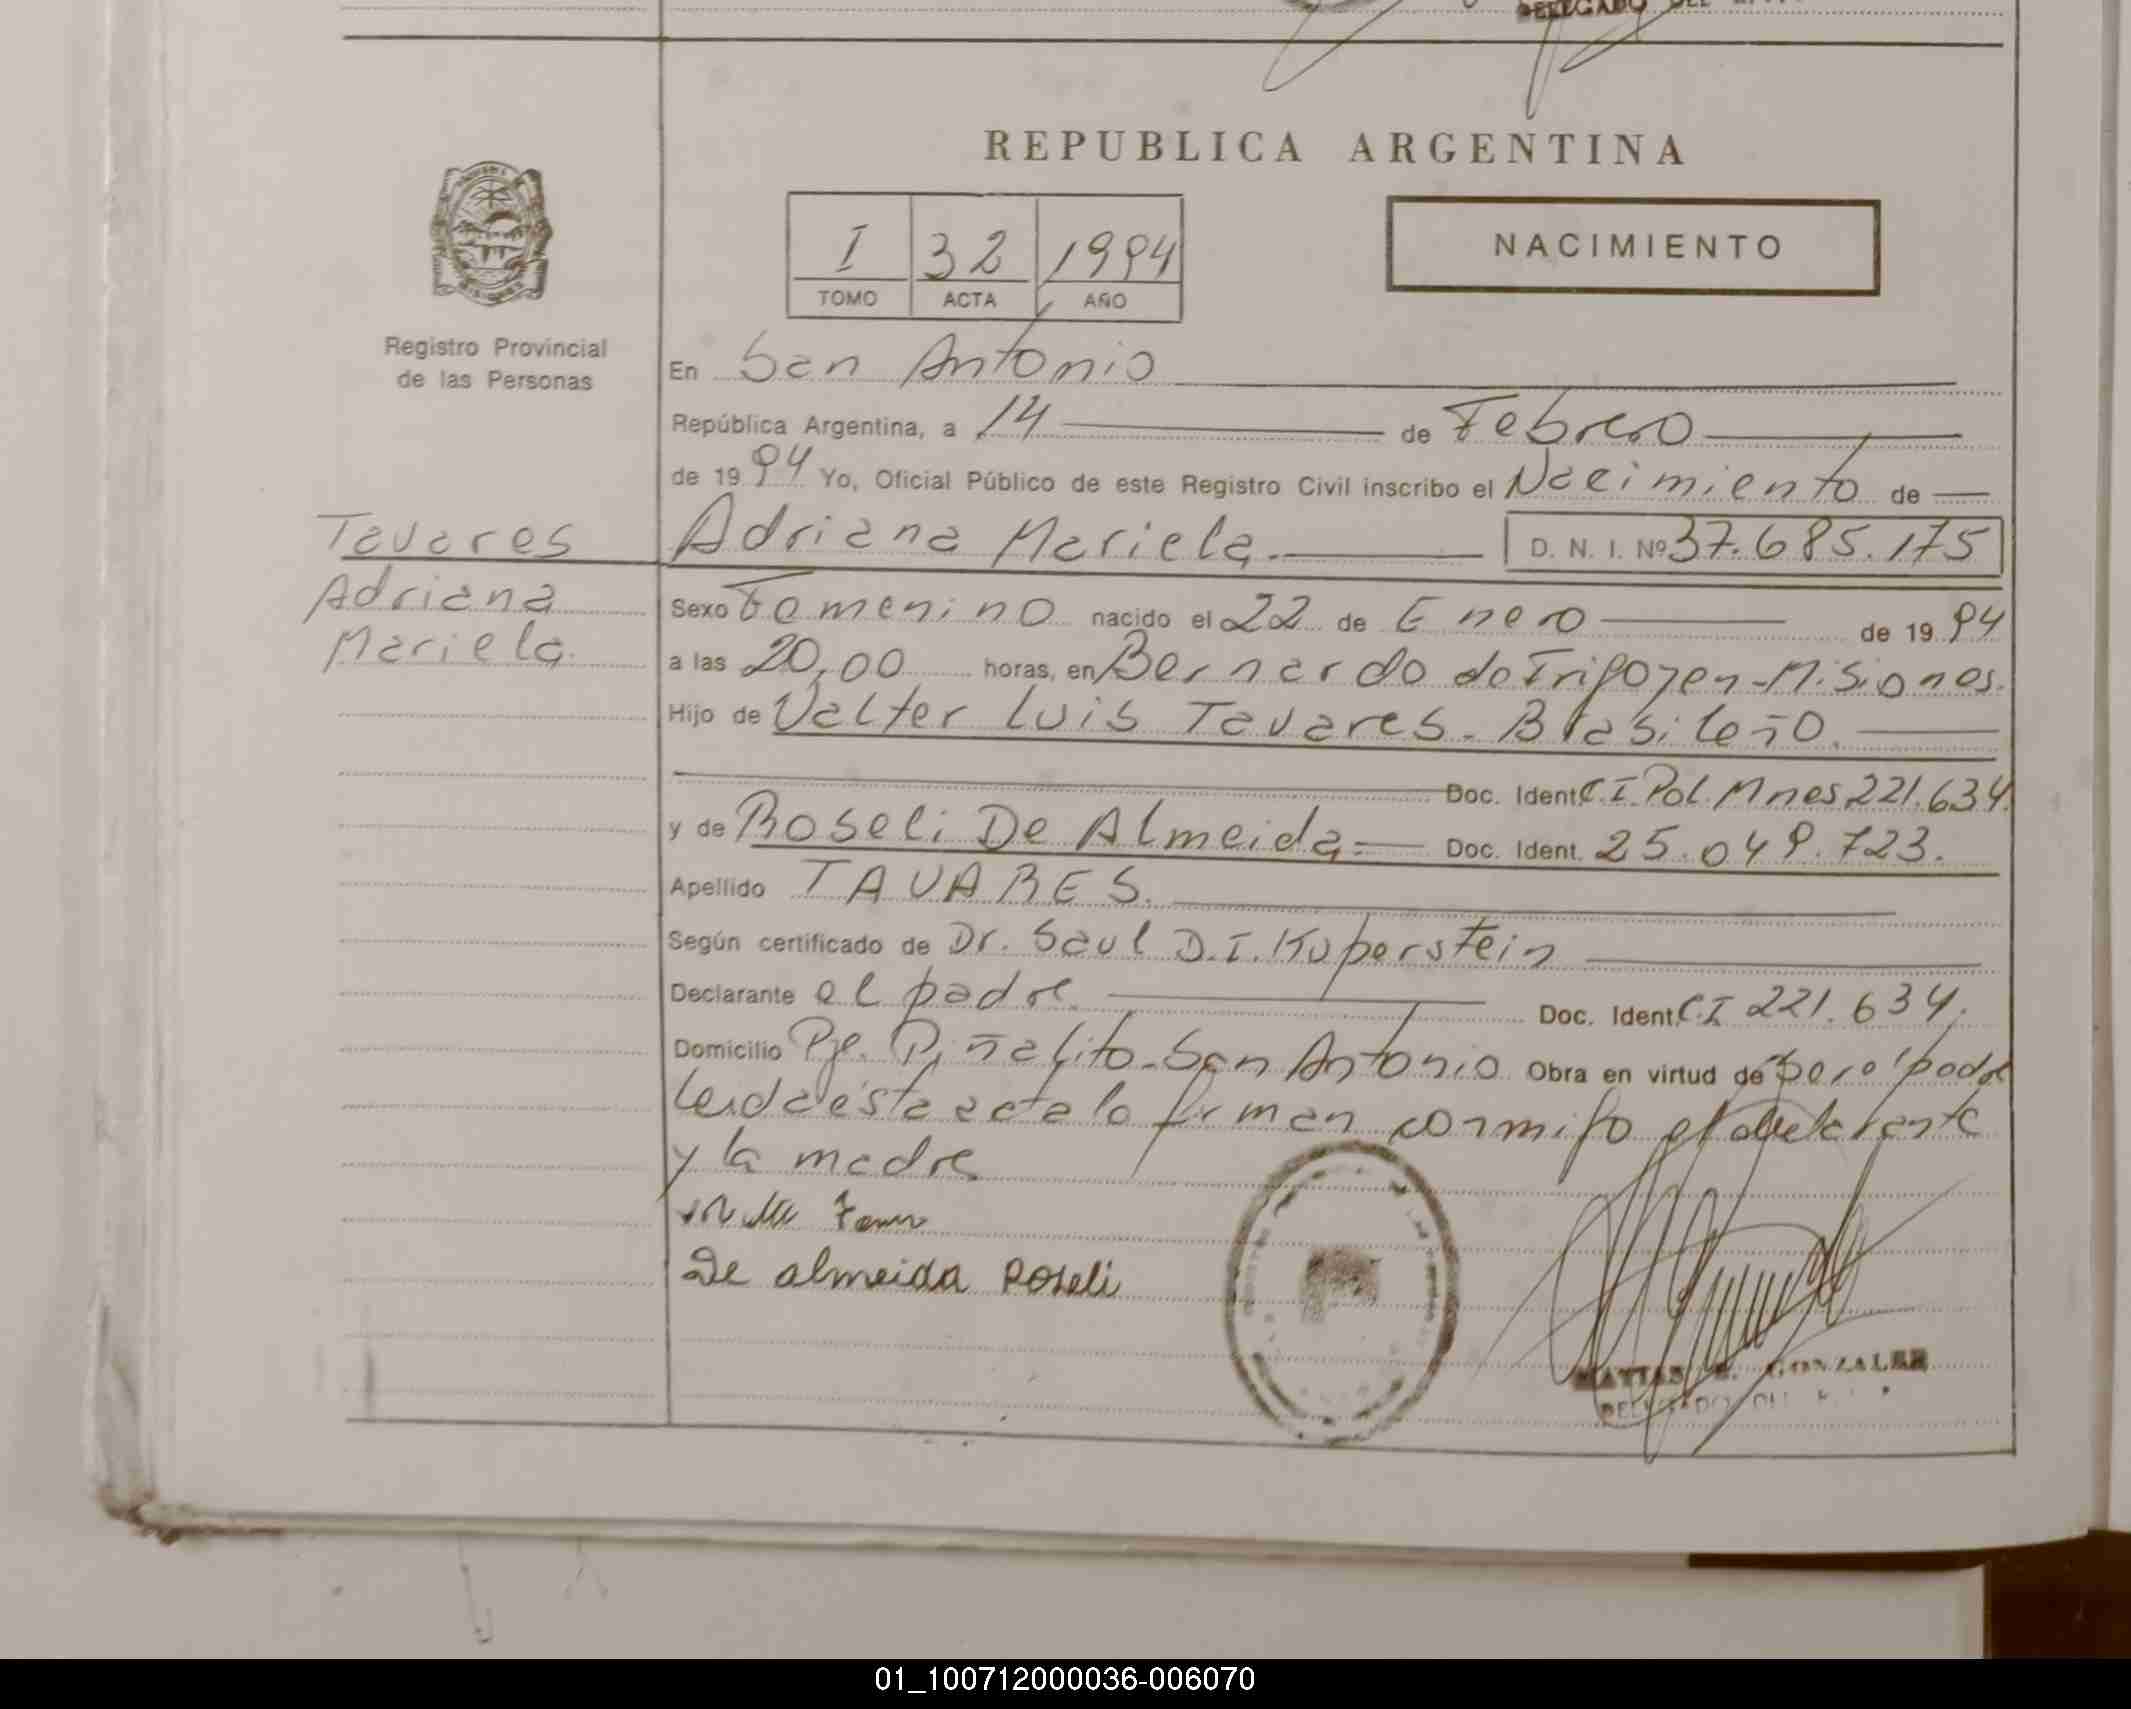 DELEGADO DEL
REPUBLICA ARGENTINA
I 32 1994
TOMO ACTA AÑO
NACIMIENTO
Registro Provincial
de las Personas
En San Antonio
República Argentina, a 14 de Febrero
de 1994 Yo, Oficial Público de este Registro Civil inscribo el Nacimiento de
Tavares
Adriana
Mariela.
Adriana Mariela. D. N. I. Nº 37.685.175
Sexo Femenino nacido el 22 de Enero de 1994
a las 20,00 horas, en Bernardo de Irigoyen-Misiones.
Hijo de Valter Luis Tavares. Brasileño.
Doc. Ident. C.I. Pol. Mnes 221.634.
y de Roseli De Almeida= Doc. Ident. 25.049.723.
Apellido TAVARES.
Según certificado de Dr. Saul D.I. Kuperstein
Declarante el padre. Doc. Ident. C.I 221.634.
Domicilio Pje. Piñalito-San Antonio Obra en virtud de
Leida ésta acta la firman conmigo el declarante
y la madre
De almeida Roseli
MATIAS GONZALEZ
DELEGADO
01_100712000036-006070